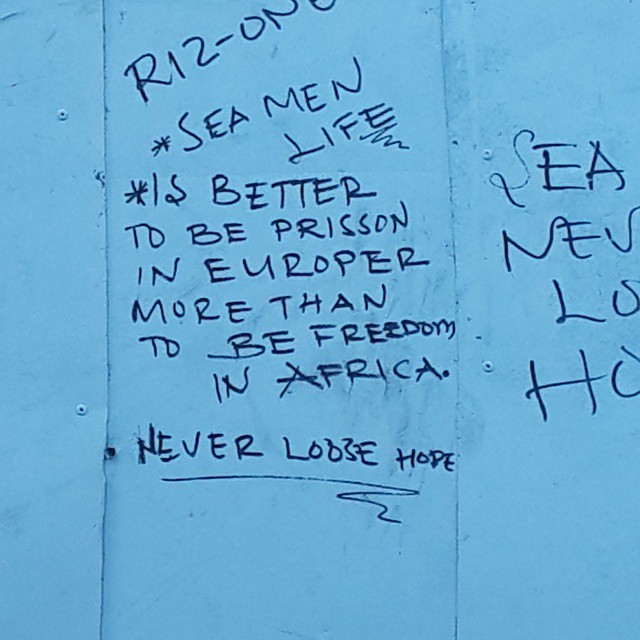 RIZ-ONE
*SEA MEN
LIFE
*IS BETTER
TO BE PRISSON
IN EUROPER
MORE THAN
TO BE FREEDOM
IN AFRICA.
NEVER LOOSE HOPE
SEA
NEV
LO
HO